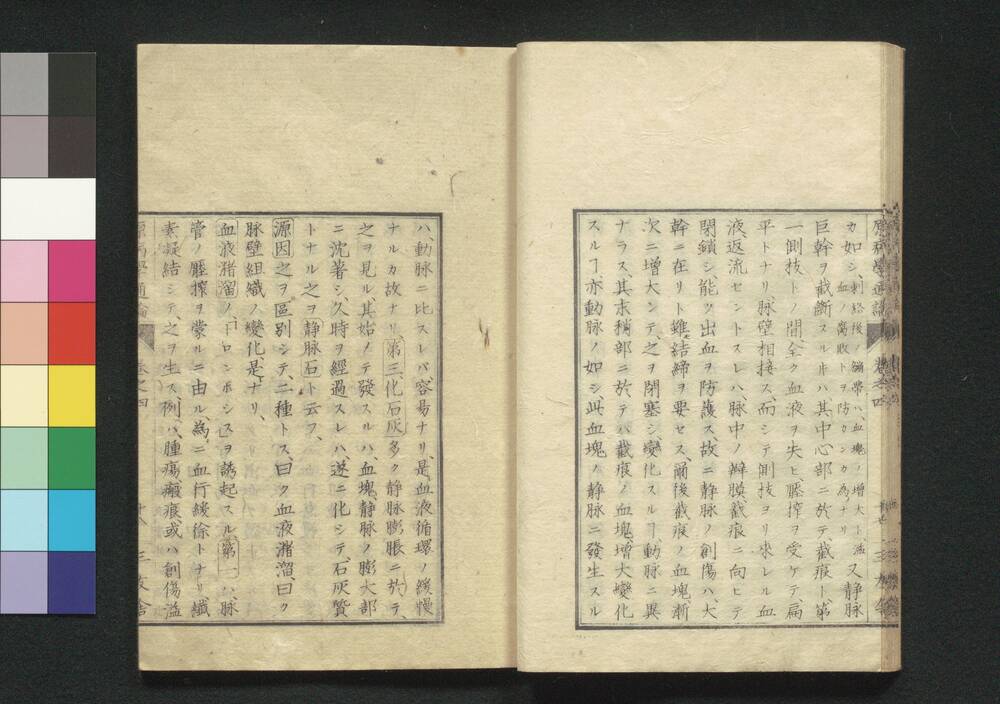 カ如シ、刺絡後ノ繃帶ハ、血塊ノ増大ト溢血ノ腐敗トヲ防カンカ爲ナリ又静脉
巨幹ヲ截斷スルキハ、其中心部ニ於テ、截痕ト、第
一側技トノ間、全ク血液ヲ失ヒ、壓搾ヲ受ケテ、扁
平トナリ、脉壁相接ス、而シテ側技ヨリ來レル血
液、返流セントスレハ、脉中ノ辨膜、截痕ニ向ヒテ
閉鎖シ、能ク出血ヲ防護ス、故ニ静脉ノ創傷ハ、大
幹ニ在リト雖、結締ヲ要セス、爾後截痕ノ血塊、漸
次ニ増大シテ、之ヲ閉塞シ、變化スルヿ、動脉ニ異
ナラス、其末稍部ニ於テハ、截痕ノ血塊、増大變化
スルヿ、亦動脉ノ如シ、此血塊ノ静脉ニ發生スル
ハ、動脉ニ比スレバ容易ナリ、是血液循環ノ緩慢
ナルカ故ナリ、第三化石灰多ク静脉膨脹ニ於テ、
之ヲ見ル、其始メテ發スルハ、血塊、静脉ノ膨大部
ニ沈著シ、久時ヲ經過スレハ、遂ニ化シテ、石灰質
トナル之ヲ静脉石ト云フ、
源因之ヲ區別シテ、二種トス、曰ク血液瀦溜、曰ク
脉壁組織ノ變化、是ナリ、
血液瀦溜ノ、トロンボシスヲ誘起スル、第一ハ、脉
管ノ壓搾ヲ蒙ルニ由ル、為ニ血行緩徐トナリ、纖
素凝結シテ、之ヲ生ス、例ハ、腫瘍瘢痕或ハ創傷溢